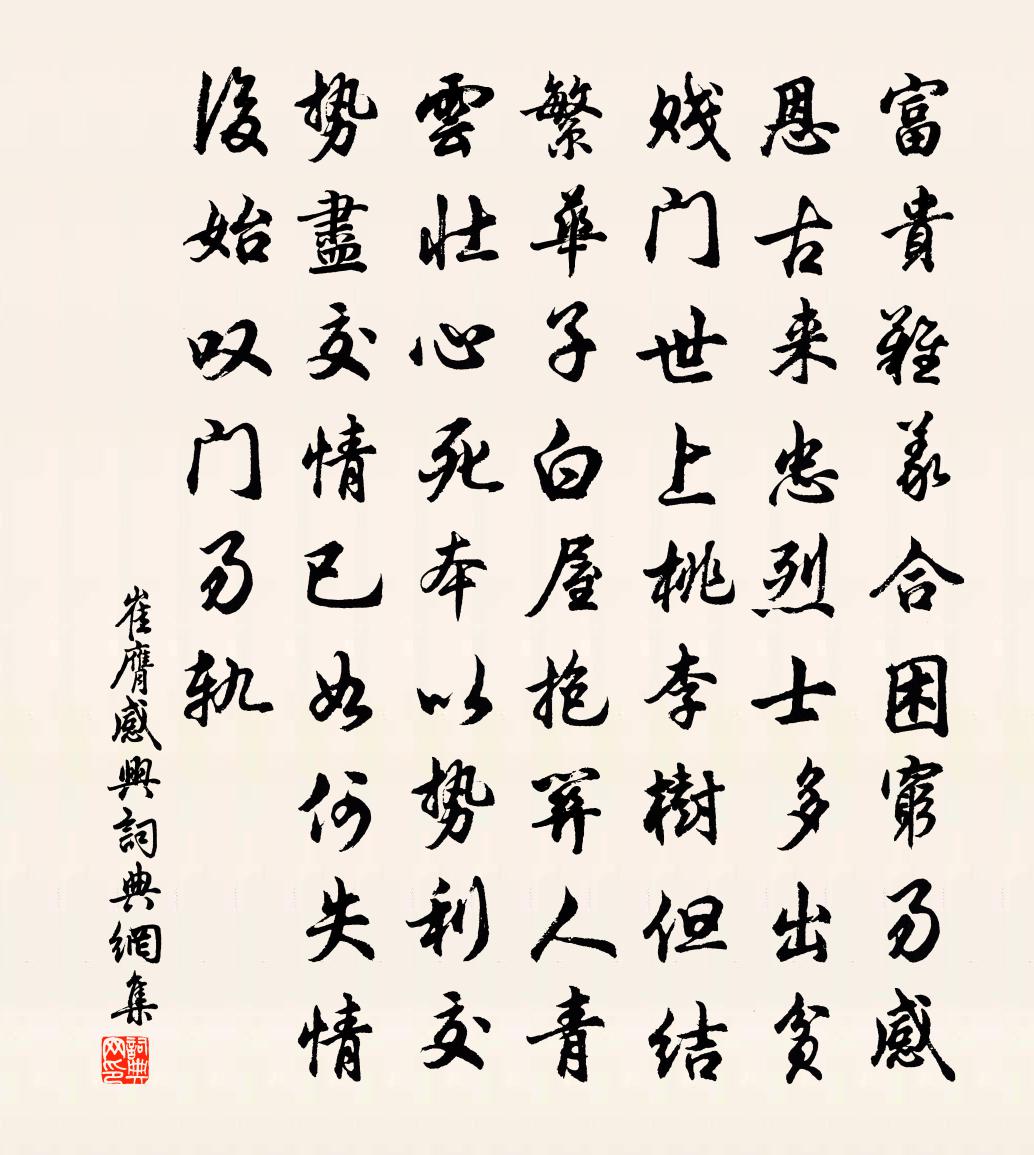 富貴難義合困窮易感
恩古来忠烈士多出貧
賤门世上桃李樹但结
繁華子白屋抱關人青
雲壮心死本以势利交
势盡交情已如何失情
後始叹门易軌
崔膺感興詞典網集
詞典网印